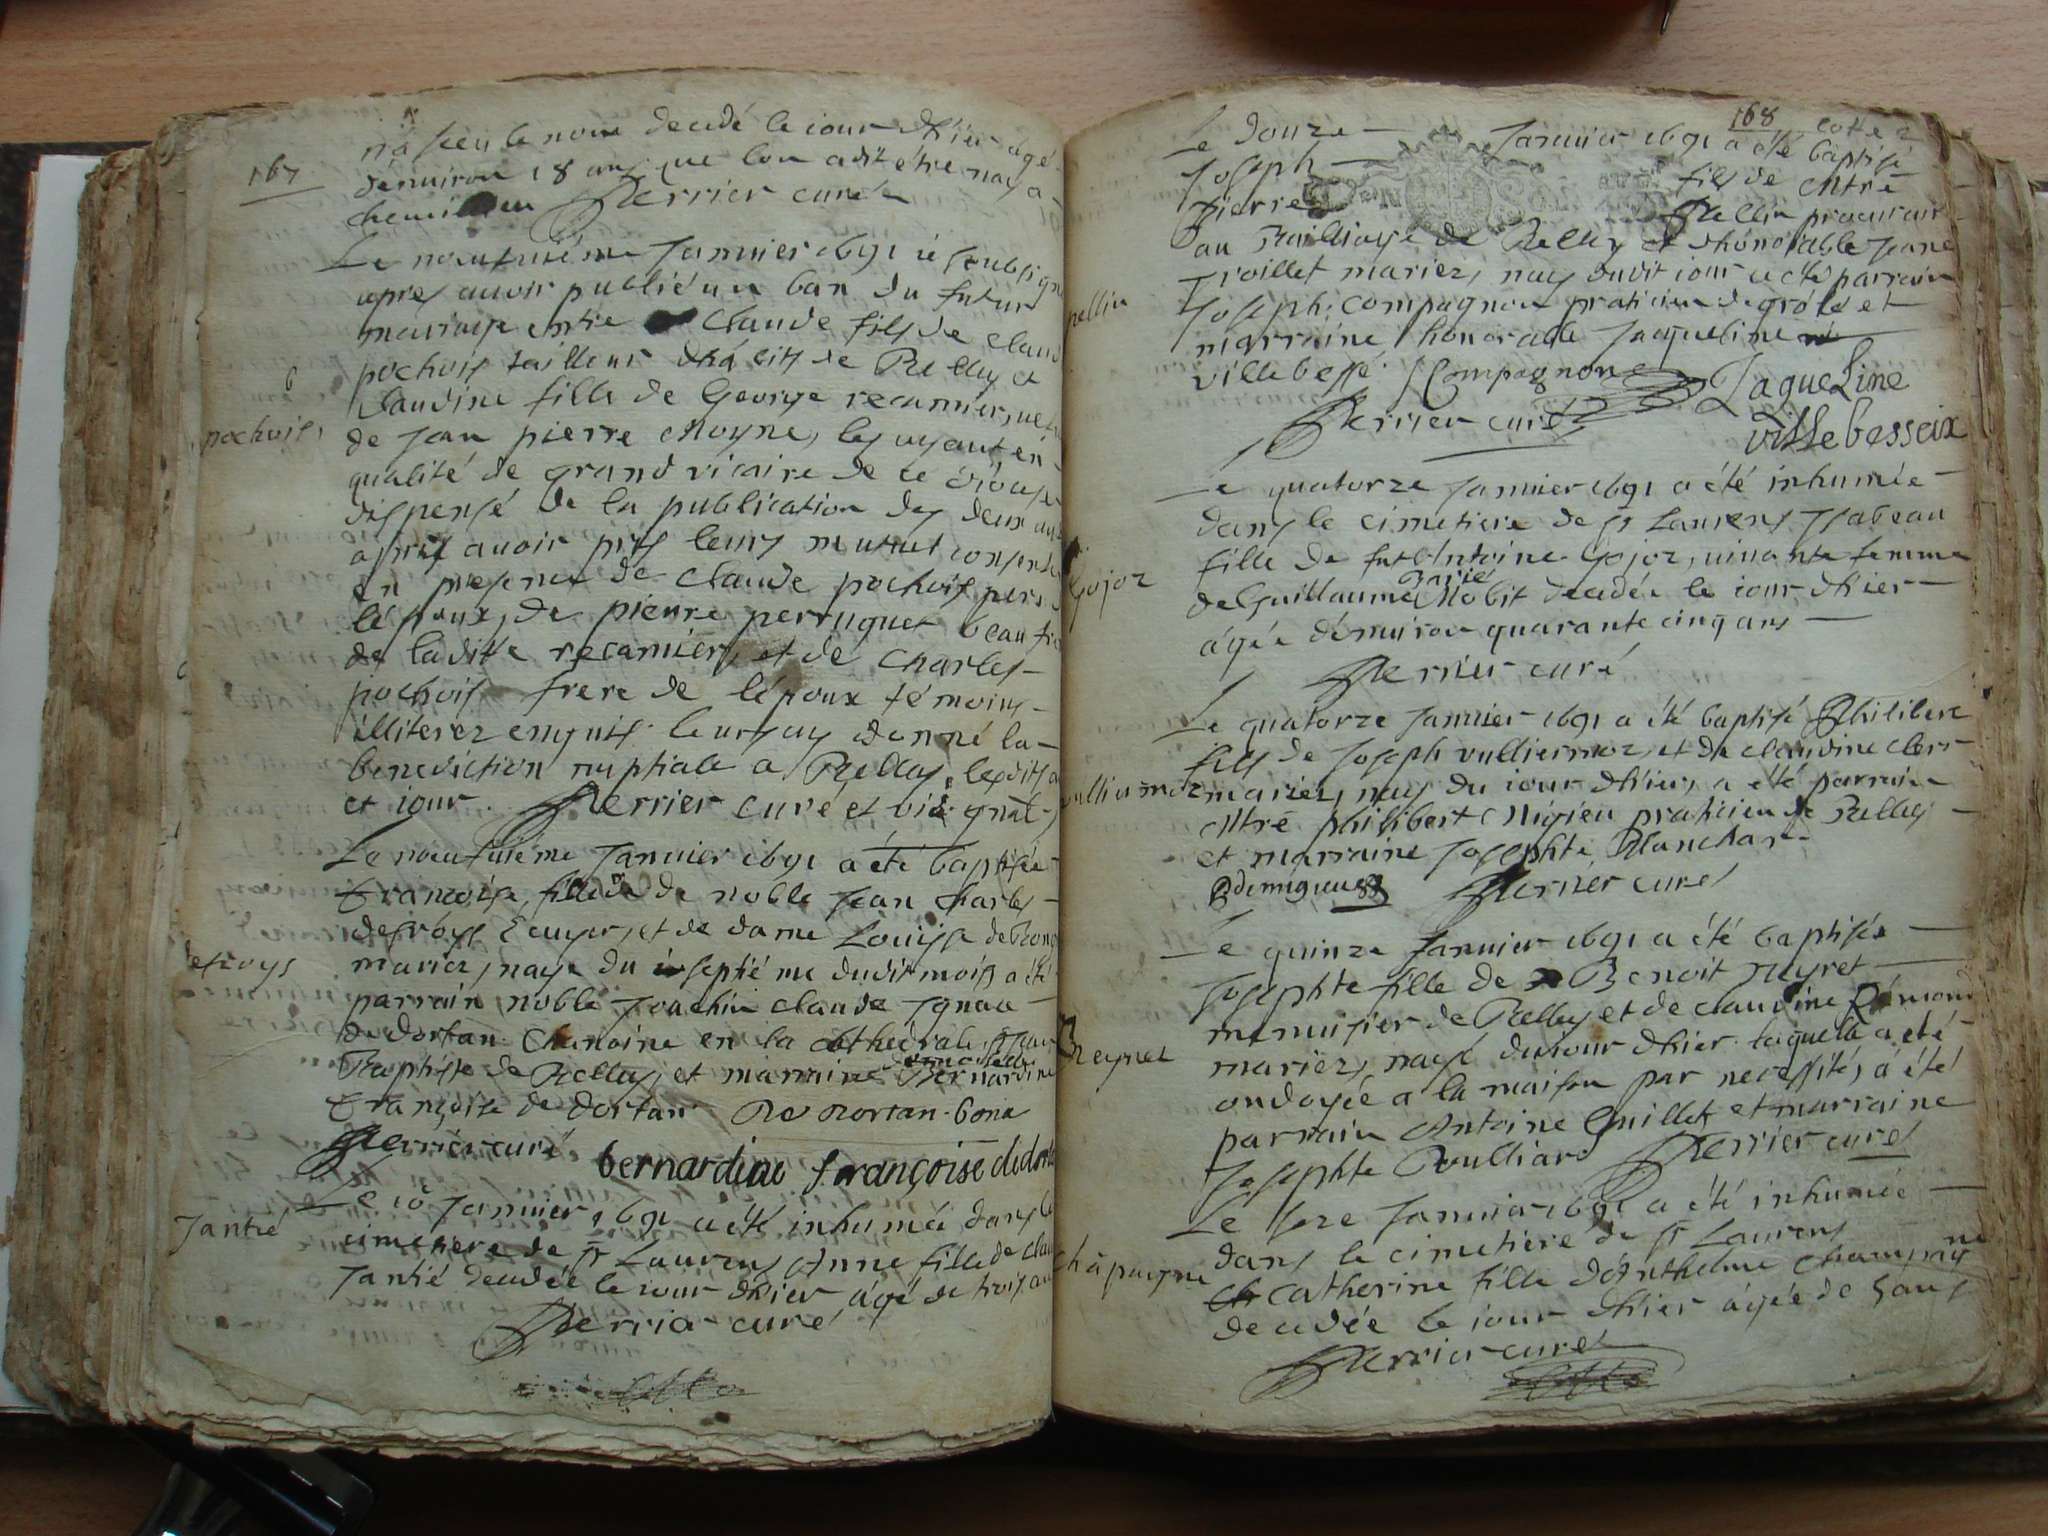 167
n'a sceu le nom decedé le iour d'hier agé
d'enuiron 18 ans que lon a dit être nay a
Perrier curé
Le neufuiéme Januier 1691 ie soubsigné
apres auoir publié un ban du futur
mariage entre Claude fils de Claude
pochois tailleur d'habits de Belley et
Claudine fille de George recamier,
pochois
de Jean pierre Moyne, les ayant en
qualité de grand vicaire de ce diocese
dispensé de la publication des deux
apres auoir pris leurs mutuel
en presence de Claude pochois pere
lépoux, de pierre perruquet beau
de ladite recamier, et de Charles
pochois frere de lépoux témoins
illiterez enquis leur ay donné la
benediction nuptiale a Belley lesdits
et iour. Perrier curé et vic gnal
Le neufuiéme Januier 1691 a été baptisée
françoise fille de noble Jean Charles
desroys Ecuyer, et de dame Louise
desroys
mariez, naye du septiéme dudit mois a été
parrain noble Joachin Claude Ignace
de dortan Chanoine en la cathedrale st Jean
Baptiste de Belley, et marraine demoiselle Bernardine
françoise de dortan De Dortan bona
Perrier curé
bernardine françoise de dortan
Le 10 Januier 1691 a été inhumée dans le
Jantié
cimetiere de st Laurens Anne fille de Claude
Jantié decedée le iour d'hier agé de trois ans
Perrier curé
168
Le douze Januier 1691 a été baptisé
Joseph fils de Mtre
Pierre Pellin procureur
au Bailliage de Belley et d'honorable Jeane
Troillet mariez, nay dudit iour a été parrain
pellin
Joseph Compagnon praticien de grolé et
marraine honorable Jaqueline
villebessé. J Compagnon Jaqueline
villebesseix
Perrier curé
Le quatorze Januier 1691 a été inhumée
dans le cimetiere de st Laurens Isabeau
fille de fut Antoine Gojoz, uiuante femme
Gojoz
de Guillaume Mobit decedée le iour d'hier
agée d'enuiron quarante cinq ans
Perrier curé
Le quatorze Januier 1691 a été baptisé Philibert
fils de Joseph vulliermoz, et de claudine clerc
vulliermoz
mariez, nay du iour d'hier, a été parrain
Mtre philibert Migieu praticien de Belley
et marraine Josephte Blanchar
P demigieu Perrier curé
Le quinze Januier 1691 a été baptisée
Josephte fille de Benoit reyret
menuisier de Belley et de Claudine Rémond
mariez, naye du iour d'hier laquelle a été
ondoyée a la maison par necessité, a été
parrain Antoine Guillet et marraine
Josephte Roulliard Perrier curé
Le seze Januier 1691 a été inhumée
dans le cimetiere de st Laurens
Catherine fille d'Anthelme Champagne
chapagne
decedée le iour d'hier agée de 5 ans
Perrier curé